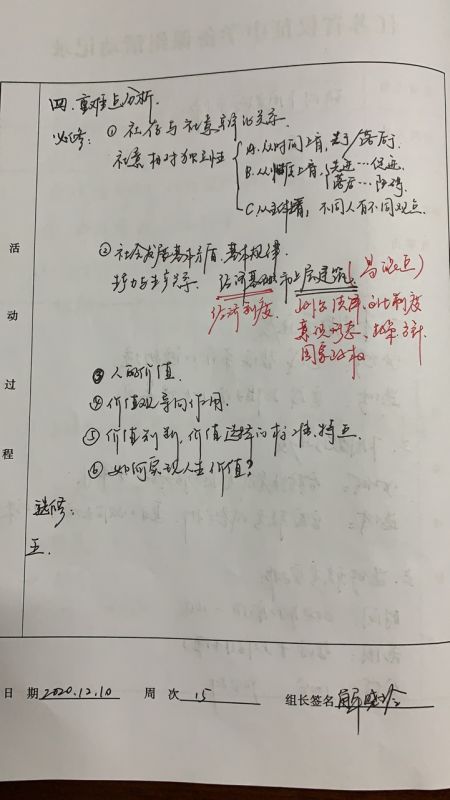 四. 重难点分析.
必修: ① 社存与社意辩证关系.
社意相对独立性
A. 从时间上看, 先于/落后于.
B. 从性质上看, 先进…促进.
落后…阻碍.
C 从主体看, 不同人有不同观点.
② 社会发展基本矛盾, 基本规律.
经济基础与上层建筑(易混点)
经济制度. 政治法律, 政治制度
意识形态, 政策方针
国家政权
③ 人的价值.
④ 价值观导向作用.
⑤ 价值判断, 价值选择的标准, 特点.
⑥ 如何实现人生价值?
选修:
五.
活
动
过
程
日 期 2020.12.10 周 次 15 组长签名